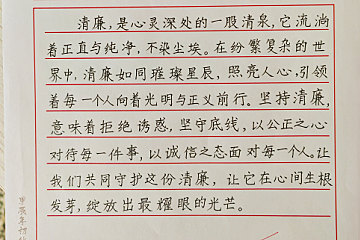 清廉，是心灵深处的一股清泉，它流淌
着正直与纯净，不染尘埃。在纷繁复杂的世
界中，清廉如同璀璨星辰，照亮人心，引领
着每一个人向着光明与正义前行。坚持清廉，
意味着拒绝诱惑，坚守底线，以公正之心
对待每一件事，以诚信之态面对每一个人。让
我们共同守护这份清廉，让它在心间生根
发芽，绽放出最耀眼的光芒。